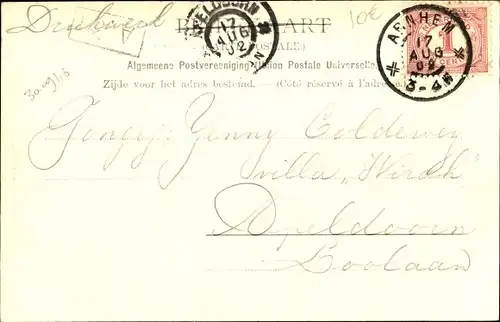 Drukwerk
10€
APELDOORN
17
AUG
02
KAART
POSTALE)
ARNHEM
17
AUG
02
3-4N
1
CENT
Algemeene Postvereeniging (Union Postale Universelle
Zijde voor het adres bestemd. — (Côté réservé à l'adresse
30.9146
Jenny Coldewey
villa „Wirdh"
Apeldoorn
Loolaan